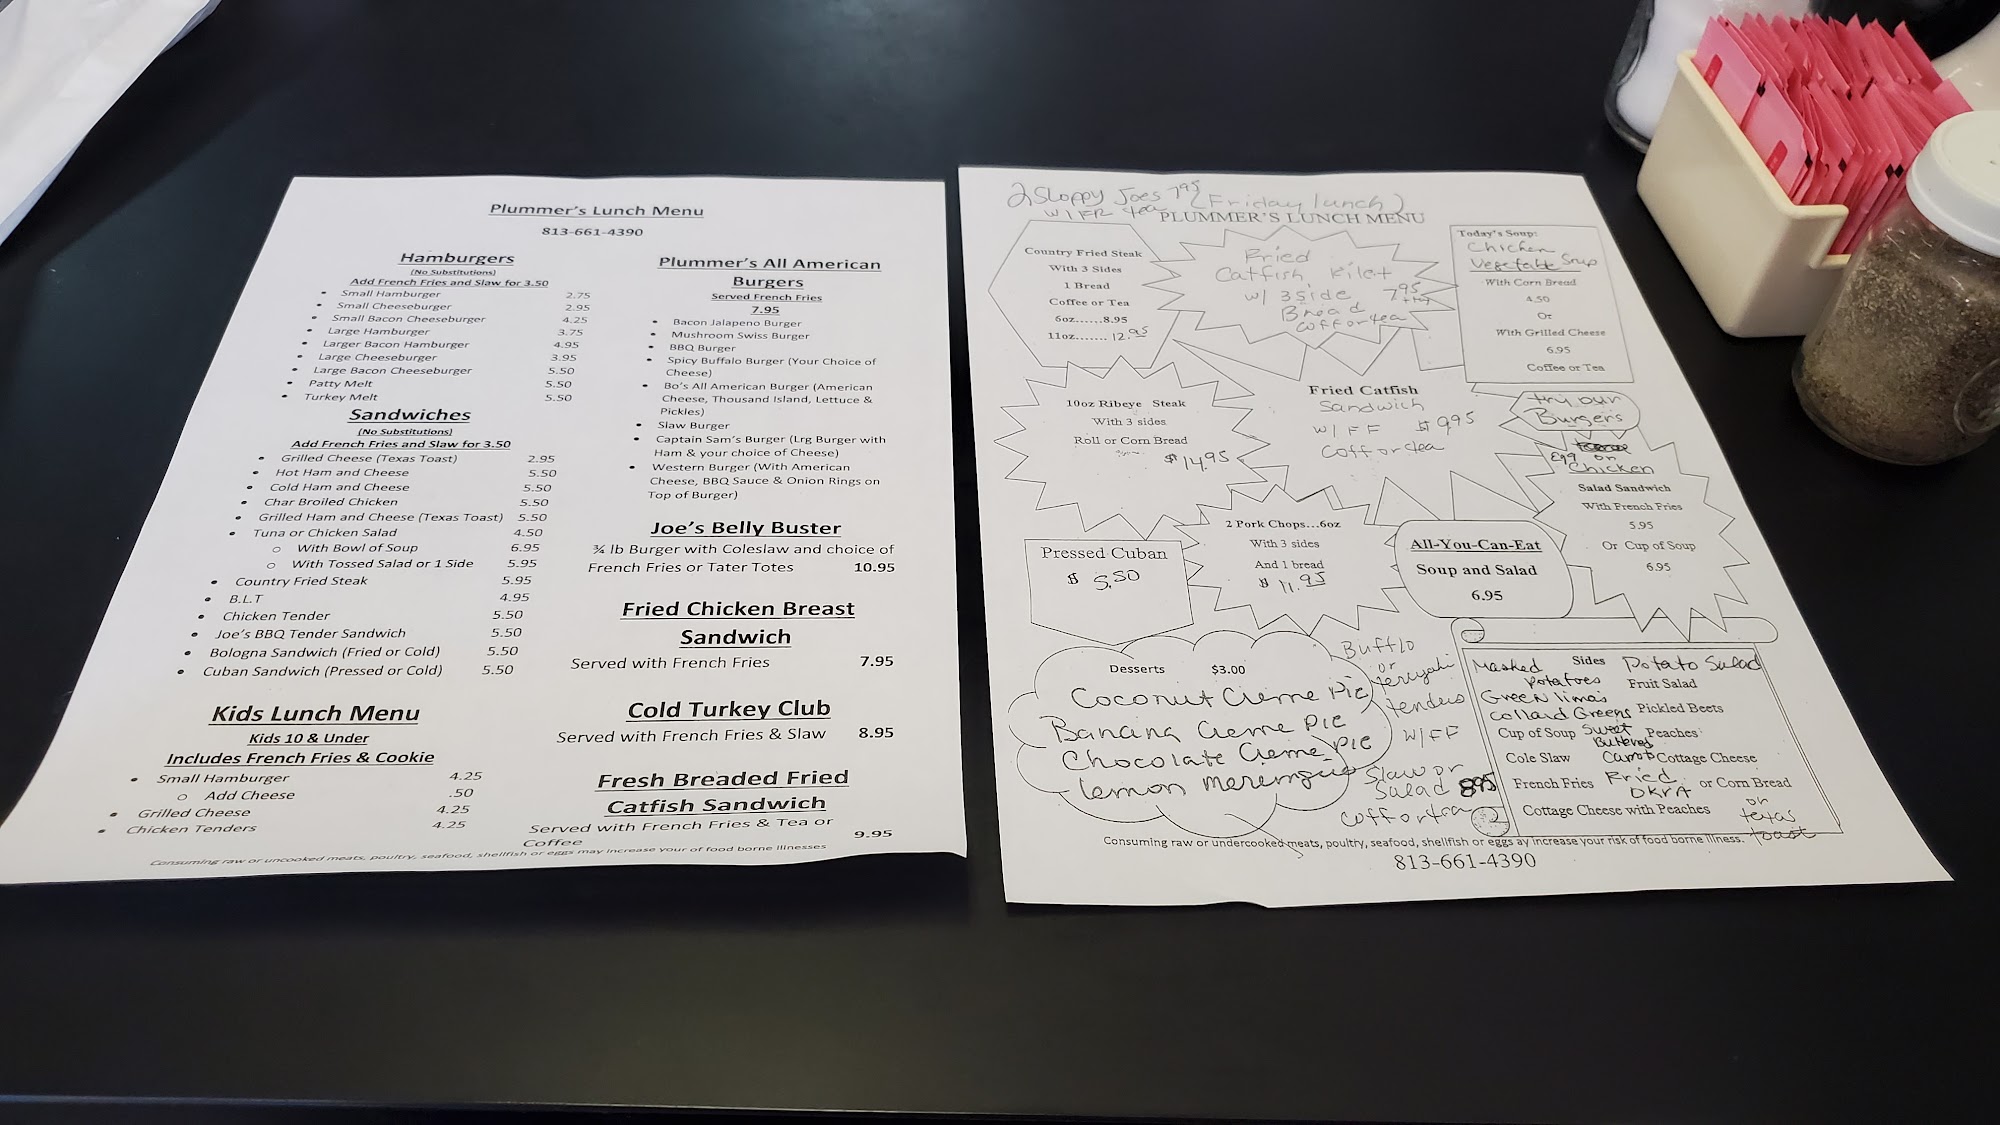 Plummer's Lunch Menu
813-661-4390
Hamburgers
(No Substitutions)
Add French Fries and Slaw for 3.50
• Small Hamburger 2.75
• Small Cheeseburger 2.95
• Small Bacon Cheeseburger 4.25
• Large Hamburger 3.75
• Larger Bacon Hamburger 4.95
• Large Cheeseburger 3.95
• Large Bacon Cheeseburger 5.50
• Patty Melt 5.50
• Turkey Melt 5.50
Sandwiches
(No Substitutions)
Add French Fries and Slaw for 3.50
• Grilled Cheese (Texas Toast) 2.95
• Hot Ham and Cheese 5.50
• Cold Ham and Cheese 5.50
• Char Broiled Chicken 5.50
• Grilled Ham and Cheese (Texas Toast) 5.50
• Tuna or Chicken Salad 4.50
○ With Bowl of Soup 6.95
○ With Tossed Salad or 1 Side 5.95
• Country Fried Steak 5.95
• B.L.T 4.95
• Chicken Tender 5.50
• Joe's BBQ Tender Sandwich 5.50
• Bologna Sandwich (Fried or Cold) 5.50
• Cuban Sandwich (Pressed or Cold) 5.50
Kids Lunch Menu
Kids 10 & Under
Includes French Fries & Cookie
• Small Hamburger 4.25
○ Add Cheese .50
• Grilled Cheese 4.25
• Chicken Tenders 4.25
Plummer's All American
Burgers
Served French Fries
7.95
• Bacon Jalapeno Burger
• Mushroom Swiss Burger
• BBQ Burger
• Spicy Buffalo Burger (Your Choice of
Cheese)
• Bo's All American Burger (American
Cheese, Thousand Island, Lettuce &
Pickles)
• Slaw Burger
• Captain Sam's Burger (Lrg Burger with
Ham & your choice of Cheese)
• Western Burger (With American
Cheese, BBQ Sauce & Onion Rings on
Top of Burger)
Joe's Belly Buster
¾ lb Burger with Coleslaw and choice of
French Fries or Tater Totes 10.95
Fried Chicken Breast
Sandwich
Served with French Fries 7.95
Cold Turkey Club
Served with French Fries & Slaw 8.95
Fresh Breaded Fried
Catfish Sandwich
Served with French Fries & Tea or
Coffee 9.95
Consuming raw or uncooked meats, poultry, seafood, shellfish or eggs may increase your of food borne illnesses
2 Sloppy Joes 7.95 (Friday lunch)
W/ FR tea
PLUMMER'S LUNCH MENU
Country Fried Steak
With 3 Sides
1 Bread
Coffee or Tea
6oz......8.95
11oz....... 12.95
Fried
Catfish Filet
w/ 3 side 7.95
Bread
Coff or tea
Today's Soup:
Chicken
Vegetable Soup
With Corn Bread
4.50
Or
With Grilled Cheese
6.95
Coffee or Tea
10oz Ribeye Steak
With 3 sides
Roll or Corn Bread
$14.95
Fried Catfish
Sandwich
W/ FF $9.95
Coff or tea
try our
Burgers
Egg or
Chicken
Salad Sandwich
With French Fries
5.95
Or Cup of Soup
6.95
Pressed Cuban
$ 5.50
2 Pork Chops...6oz
With 3 sides
And 1 bread
$ 11.95
All-You-Can-Eat
Soup and Salad
6.95
Desserts $3.00
Coconut Creme Pie
Banana Creme Pie
Chocolate Creme Pie
Lemon Merengue
Bufflo
or
teriyaki
tenders
W/FF
Slaw or
Salad 8.95
Coff or tea
Sides
Mashed Potatoes
Potato Salad
Green limas
Fruit Salad
Collard Greens
Pickled Beets
Cup of Soup
Sweet Buttered Carrots
Peaches
Cole Slaw
Cottage Cheese
French Fries
Fried OKRA
or Corn Bread
Cottage Cheese with Peaches
or
texas
toast
Consuming raw or undercooked meats, poultry, seafood, shellfish or eggs ay increase your risk of food borne illness.
813-661-4390